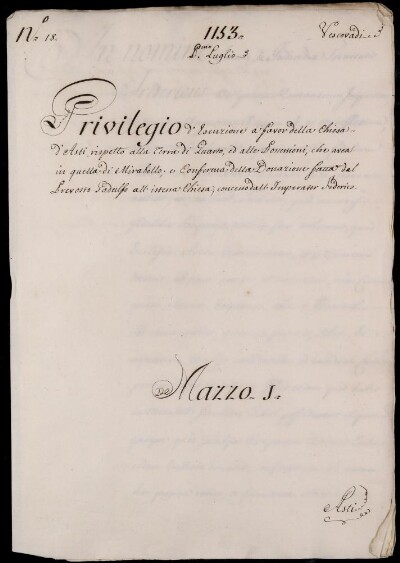 N.º 18. 1153. Vescovadi
P.mo Luglio
Privilegio d'Esenzione a favor della Chiesa
d'Asti, rispetto alla Terra di Quarto, ed alle Possessioni, che avea
in quella di Mirabello, e Conferma della Donazione fatta dal
Prevosto Padulfo all'istessa Chiesa; concesso dall'Imperator Federico.
Mazzo 1.
Asti